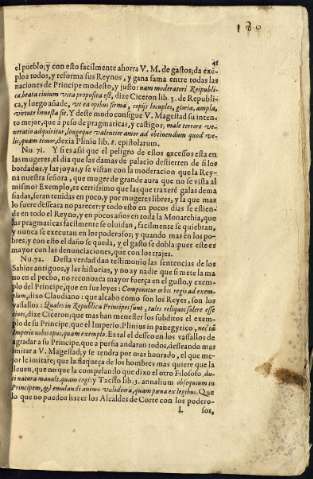 180
41
el pueblo, y con esto facilmente ahorra V. M. de gastos, da exẽ-
plo a todos, y reforma sus Reynos, y gana fama entre todas las
naciones de Principe modesto, y justo: nam moderatori Reipubli-
cæ beata civium vita proposita est, dize Ciceron lib. 5. de Republi-
ca, y luego añade, ut ea opibus firma, copijs locuples, gloria, ampla,
virtute honesta sit. Y deste modo consigue V. Magestad su inten-
to mejor, que à peso de pragmaticas, y castigos, male terrore ve-
neratio adquiritur, longeque valentior amor ad obtinendum quod ve-
lis, quam timor, dezia Plinio lib. 8. epistolarum.
Nu. 71. Y si es assi que el peligro de estos excessos esta en
las mugeres, el dia que las damas de palacio destierren de si los
bordados, y las joyas, y se vistan con la moderacion que la Rey-
na nuestra señora, que muger de grande aura que no se vista al
mismo? Exemplo, es certissimo que las que traxeré galas dema-
siadas, seran tenidas en poco, y por mugeres libres, y la que mas
lo fuere desseara no parecer: y todo esto en pocos dias se estien-
de en todo el Reyno, y en pocos años en toda la Monarchia, que
las pragmaticas facilmente se olvidan, facilmente se quiebran,
y nunca se executan en los poderosos: y quando mas en los po-
bres, y con ello el daño se queda, y el gasto se dobla: pues es
mayor con las denunciaciones, que con los trajes.
Nu. 72. Desta verdad dan testimonio las sentencias de los
Sabios antiguos, y las historias, y no ay nadie que si mete la ma-
no en el pecho, no reconozca mayor fuerça en el gusto, y exem-
plo del Principe, que en sus leyes: Componitur orbis regis ad exem-
plum, dixo Claudiano: que al cabo como son los Reyes, son los
vassallos: Quales in Republica Principes sunt, tales reliquos solere esse
cives, dize Ciceron, que mas han menester los subditos el exem-
plo de su Principe, que el Imperio. Plinius in panegyrico, nec tã
Imperio nobis opus, quam exemplo. Es tal el desseo en los vassallos de
agradar a su Principe, que a porfia andaran todos, desseando mas
imitar a V. Magestad, y se tendra por mas honrado, el que me-
jor le imitare; que la flaqueza de los hombres mas quiere que la
lleven, que no que la compelan: que dixo el otro Filosofo, du-
ci natura mavult, quam cogi: y Tacito lib. 3. annalium obsequium in
Principem, & æmulandi amor validior, quam pœna ex legibus. Que
lo que no pueden hazer los Alcaldes de Corte con los podero-
L sos,